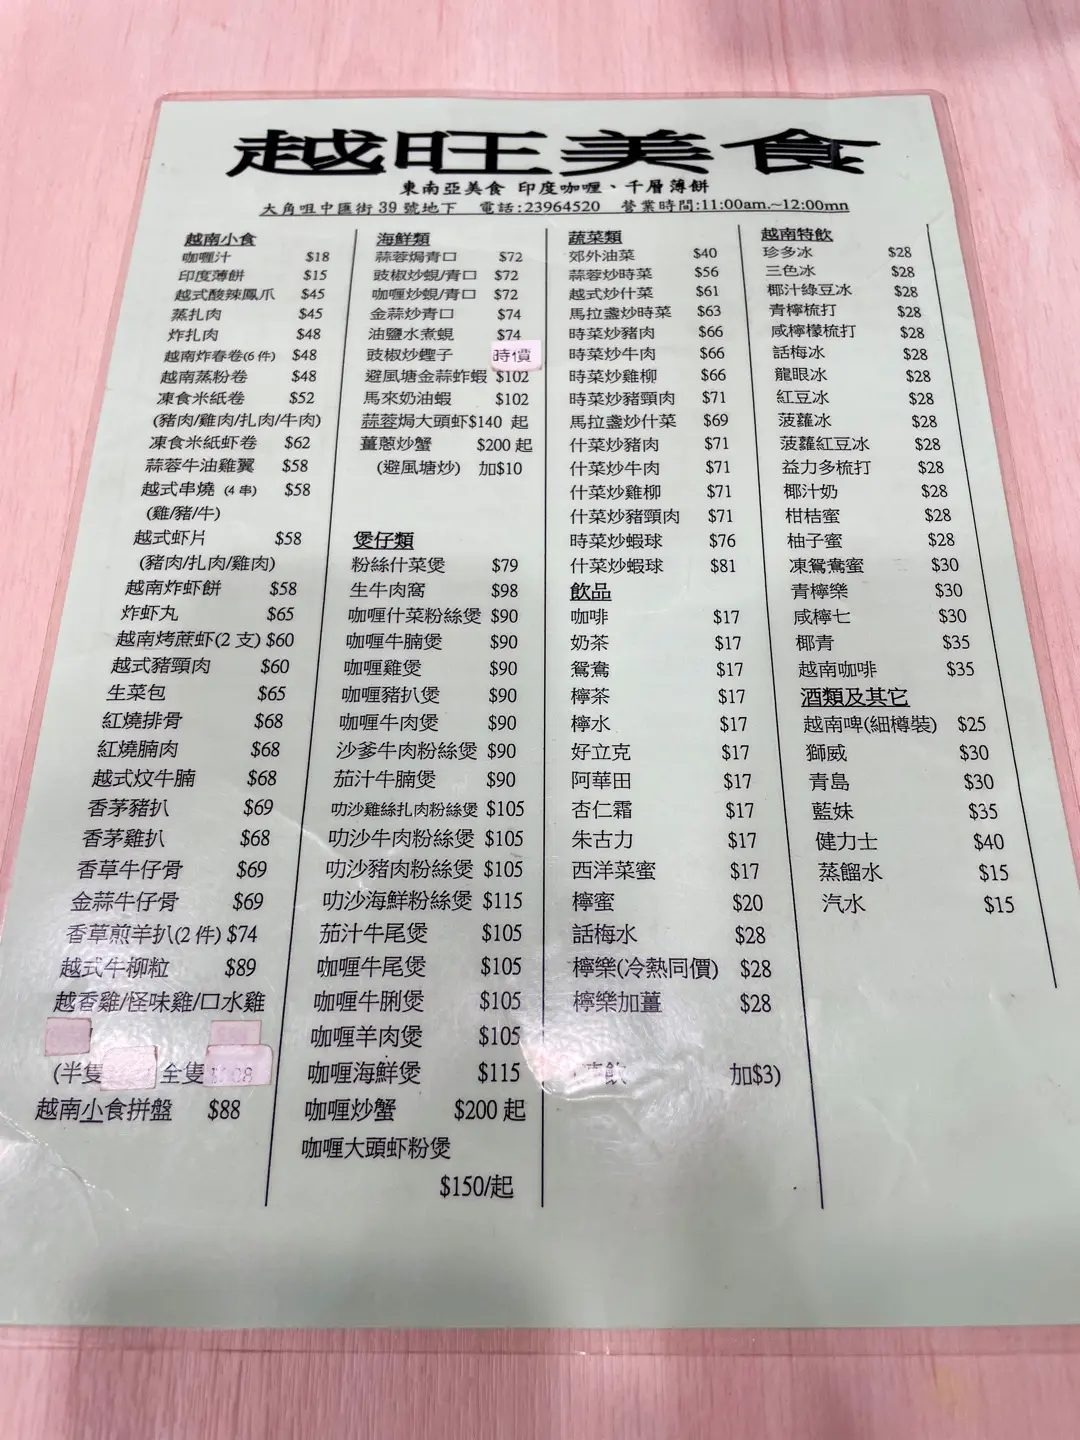 越旺美食
東南亞美食 印度咖喱、千層薄餅
大角咀中匯街 39 號地下 電話:23964520 營業時間:11:00am.~12:00mn
越南小食
咖喱汁 $18
印度薄餅 $15
越式酸辣鳳爪 $45
蒸扎肉 $45
炸扎肉 $48
越南炸春卷(6 件) $48
越南蒸粉卷 $48
凍食米紙卷 $52
(豬肉/雞肉/扎肉/牛肉)
凍食米紙虾卷 $62
蒜蓉牛油雞翼 $58
越式串燒 (4 串) $58
(雞/豬/牛)
越式虾片 $58
(豬肉/扎肉/雞肉)
越南炸虾餅 $58
炸虾丸 $65
越南烤蔗虾(2 支) $60
越式豬頸肉 $60
生菜包 $65
紅燒排骨 $68
紅燒腩肉 $68
越式炆牛腩 $68
香茅豬扒 $69
香茅雞扒 $68
香草牛仔骨 $69
金蒜牛仔骨 $69
香草煎羊扒(2 件) $74
越式牛柳粒 $89
越香雞/怪味雞/口水雞
(半隻 全隻
越南小食拼盤 $88
海鮮類
蒜蓉焗青口 $72
豉椒炒蜆/青口 $72
咖喱炒蜆/青口 $72
金蒜炒青口 $74
油鹽水煮蜆 $74
豉椒炒蟶子 時價
避風塘金蒜炸蝦 $102
馬來奶油蝦 $102
蒜蓉焗大頭虾$140 起
薑蔥炒蟹 $200 起
(避風塘炒) 加$10
煲仔類
粉絲什菜煲 $79
生牛肉窩 $98
咖喱什菜粉絲煲 $90
咖喱牛腩煲 $90
咖喱雞煲 $90
咖喱豬扒煲 $90
咖喱牛肉煲 $90
沙爹牛肉粉絲煲 $90
茄汁牛腩煲 $90
叻沙雞絲扎肉粉絲煲 $105
叻沙牛肉粉絲煲 $105
叻沙豬肉粉絲煲 $105
叻沙海鮮粉絲煲 $115
茄汁牛尾煲 $105
咖喱牛尾煲 $105
咖喱牛脷煲 $105
咖喱羊肉煲 $105
咖喱海鮮煲 $115
咖喱炒蟹 $200 起
咖喱大頭虾粉煲
$150/起
蔬菜類
郊外油菜 $40
蒜蓉炒時菜 $56
越式炒什菜 $61
馬拉盞炒時菜 $63
時菜炒豬肉 $66
時菜炒牛肉 $66
時菜炒雞柳 $66
時菜炒豬頸肉 $71
馬拉盞炒什菜 $69
什菜炒豬肉 $71
什菜炒牛肉 $71
什菜炒雞柳 $71
什菜炒豬頸肉 $71
時菜炒蝦球 $76
什菜炒蝦球 $81
飲品
咖啡 $17
奶茶 $17
鴛鴦 $17
檸茶 $17
檸水 $17
好立克 $17
阿華田 $17
杏仁霜 $17
朱古力 $17
西洋菜蜜 $17
檸蜜 $20
話梅水 $28
檸樂(冷熱同價) $28
檸樂加薑 $28
飲 加$3)
越南特飲
珍多冰 $28
三色冰 $28
椰汁綠豆冰 $28
青檸梳打 $28
咸檸檬梳打 $28
話梅冰 $28
龍眼冰 $28
紅豆冰 $28
菠蘿冰 $28
菠蘿紅豆冰 $28
益力多梳打 $28
椰汁奶 $28
柑桔蜜 $28
柚子蜜 $28
凍鴛鴦蜜 $30
青檸樂 $30
咸檸七 $30
椰青 $35
越南咖啡 $35
酒類及其它
越南啤(細樽裝) $25
獅威 $30
青島 $30
藍妹 $35
健力士 $40
蒸餾水 $15
汽水 $15